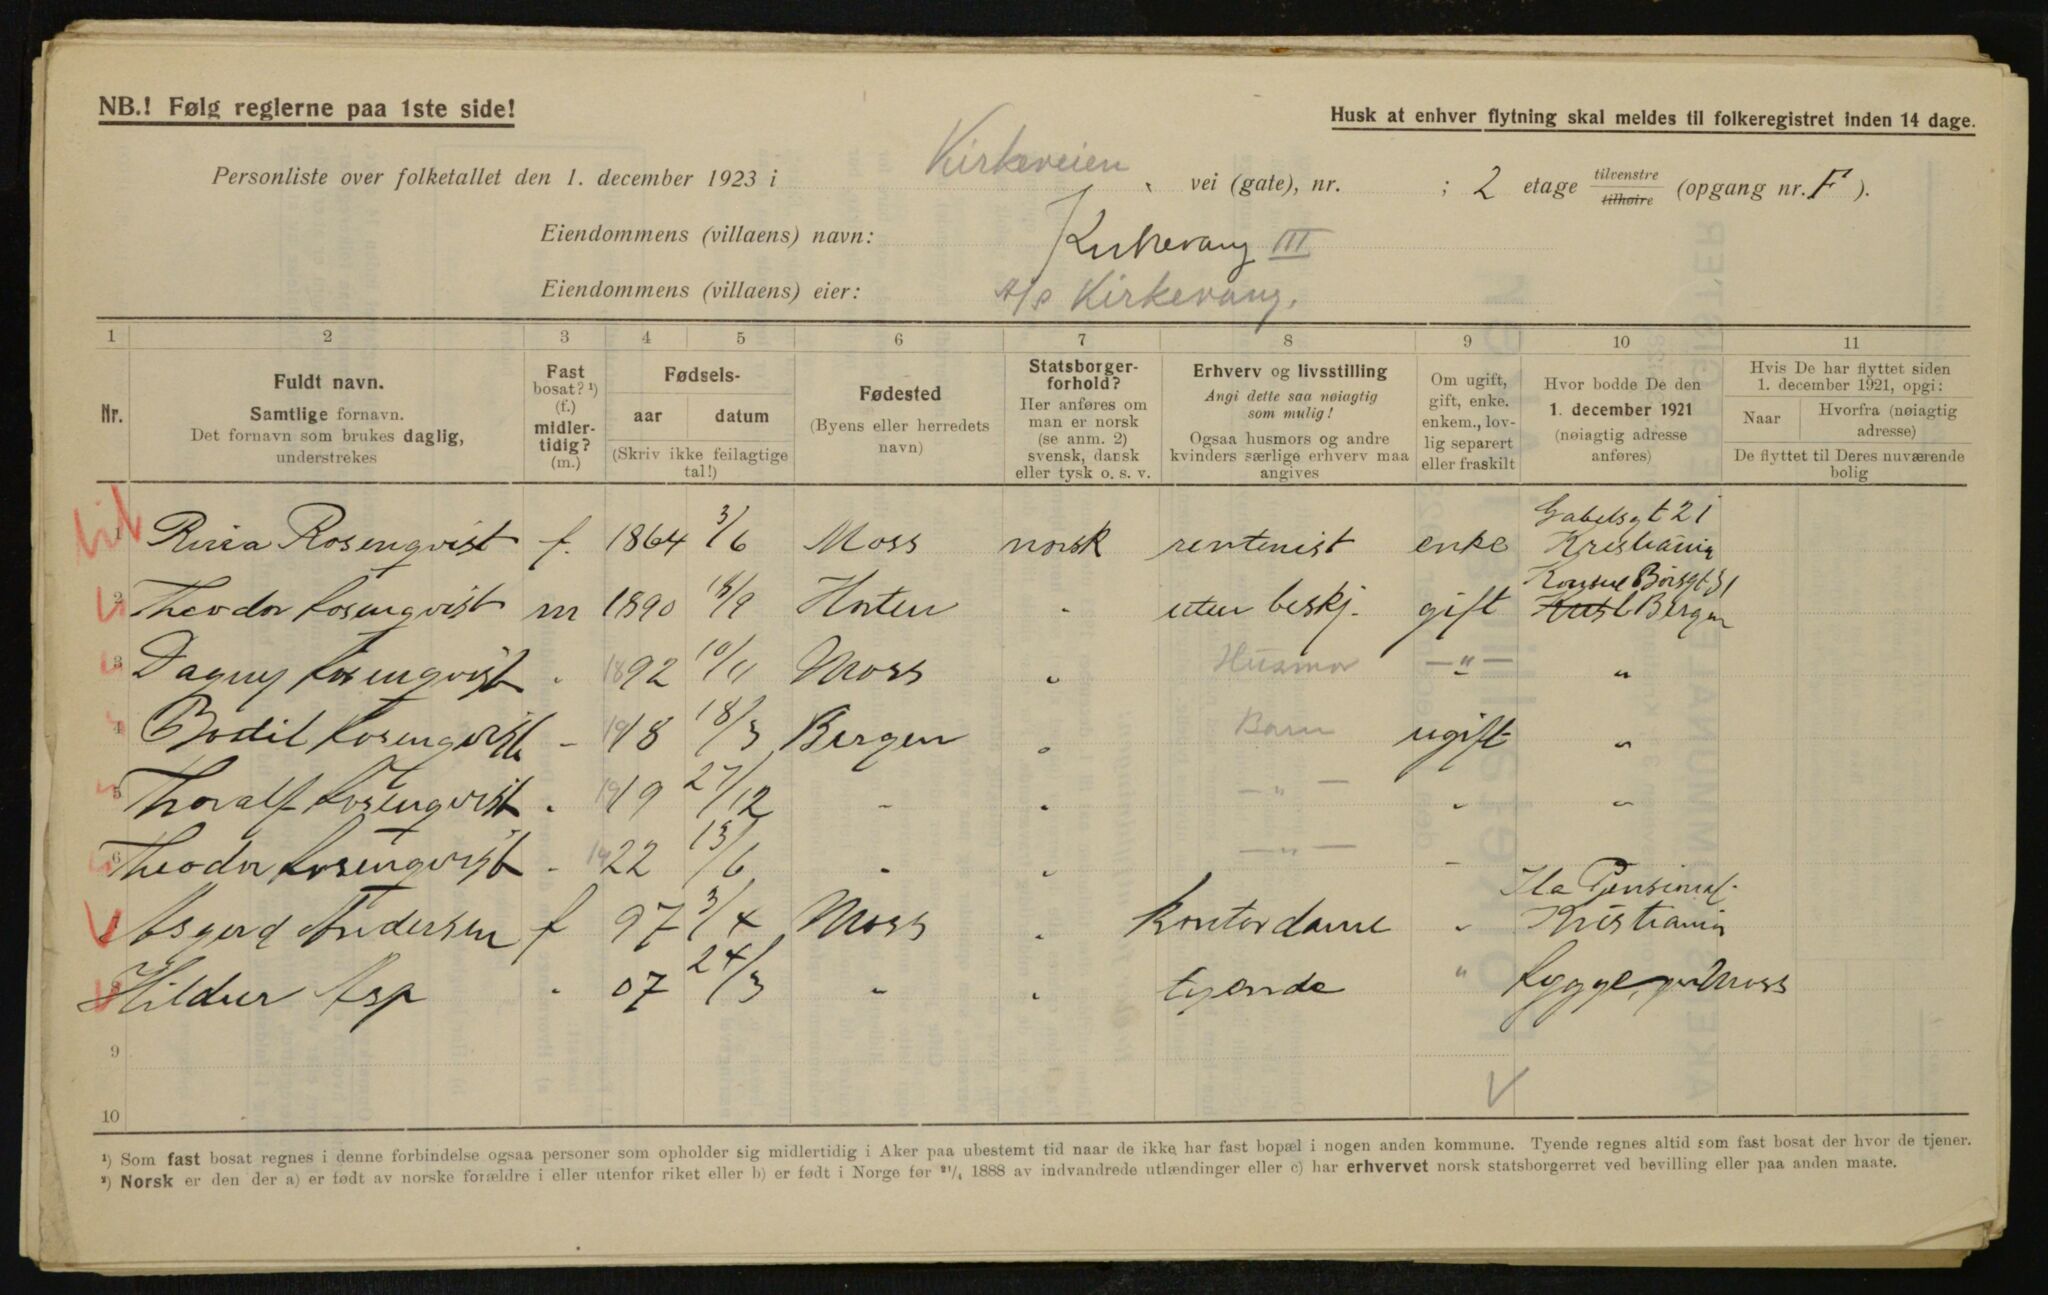 NB.! Følg reglerne paa 1ste side!
Husk at enhver flytning skal meldes til folkeregistret inden 14 dage.
Personliste over folketallet den 1. december 1923 i Kirkeveien vei (gate), nr. ; 2 etage tilvenstre tilhøire (opgang nr. F).
Eiendommens (villaens) navn: Kirkevang III
Eiendommens (villaens) eier: A/S Kirkevang.
1 2 3 4 5 6 7 8 9 10 11
Nr.
Fuldt navn.
Samtlige fornavn.
Det fornavn som brukes daglig,
understrekes
Fast
bosat? ¹)
(f.)
midler-
tidig?
(m.)
Fødsels-
aar datum
(Skriv ikke feilagtige
tal!)
Fødested
(Byens eller herredets
navn)
Statsborger-
forhold?
Her anføres om
man er norsk
(se anm. 2)
svensk, dansk
eller tysk o. s. v.
Erhverv og livsstilling
Angi dette saa nøiagtig
som mulig!
Ogsaa husmors og andre
kvinders særlige erhverv maa
angives
Om ugift,
gift, enke.
enkem., lov-
lig separert
eller fraskilt
Hvor bodde De den
1. december 1921
(nøiagtig adresse
anføres)
Hvis De har flyttet siden
1. december 1921, opgi:
Naar Hvorfra (nøiagtig
adresse)
De flyttet til Deres nuværende
bolig
til
1 Rosenqvist f. 1864 3/6 Moss norsk rentenist enke Gabelsgt 21
Kristiania
2 Theodor Rosenqvist m 1890 18/9 Horten " uten beskj. gift Konsul Børsgt 31
Bergen
3 Dagny Rosenqvist " 1892 10/11 Moss " Husmor — " — "
4 Bodil Rosenqvist " 1918 18/3 Bergen " Barn ugift "
5 Thoralf Rosenqvist " 1919 27/12 " " — " — " "
6 Theodor Rosenqvist " 1922 13/6 " " — " —
Asgerd Andersen f 97 3/4 Moss " kontordame " Ila Pensionat
Kristiania
Hildur Asp " 07 24/3 " " tyende " Rygge, pr Moss
9
10
¹) Som fast bosat regnes i denne forbindelse ogsaa personer som opholder sig midlertidig i Aker paa ubestemt tid naar de ikke har fast bopæl i nogen anden kommune. Tyende regnes altid som fast bosat der hvor de tjener.
²) Norsk er den der a) er født av norske forældre i eller utenfor riket eller b) er født i Norge før ²¹/₁ 1888 av indvandrede utlændinger eller c) har erhvervet norsk statsborgerret ved bevilling eller paa anden maate.